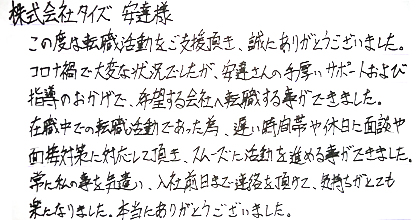 株式会社タイズ 安達様
この度は転職活動をご支援頂き、誠にありがとうございました。
コロナ禍で大変な状況でしたが、安達さんの手厚いサポートおよび
指導のおかげで、希望する会社へ転職する事ができました。
在職中での転職活動であった為、遅い時間帯や休日に面談や
面接対策に対応して頂き、スムーズに活動を進める事ができました。
常に私の事を気遣い、入社前日まで連絡を頂けて、気持ちがとても
楽になりました。本当にありがとうございました。